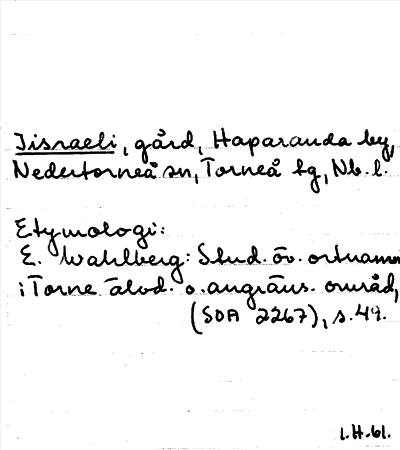 Iisraeli, gård, Haparanda by,
Nedertorneå sn, Torneå tg, Nb. l.
Etymologi:
E. Wahlberg: Stud. öv. ortnamn
i Torne älvd. o. angräns. områd,
(SOA 2267), s. 49.
I.H.61.